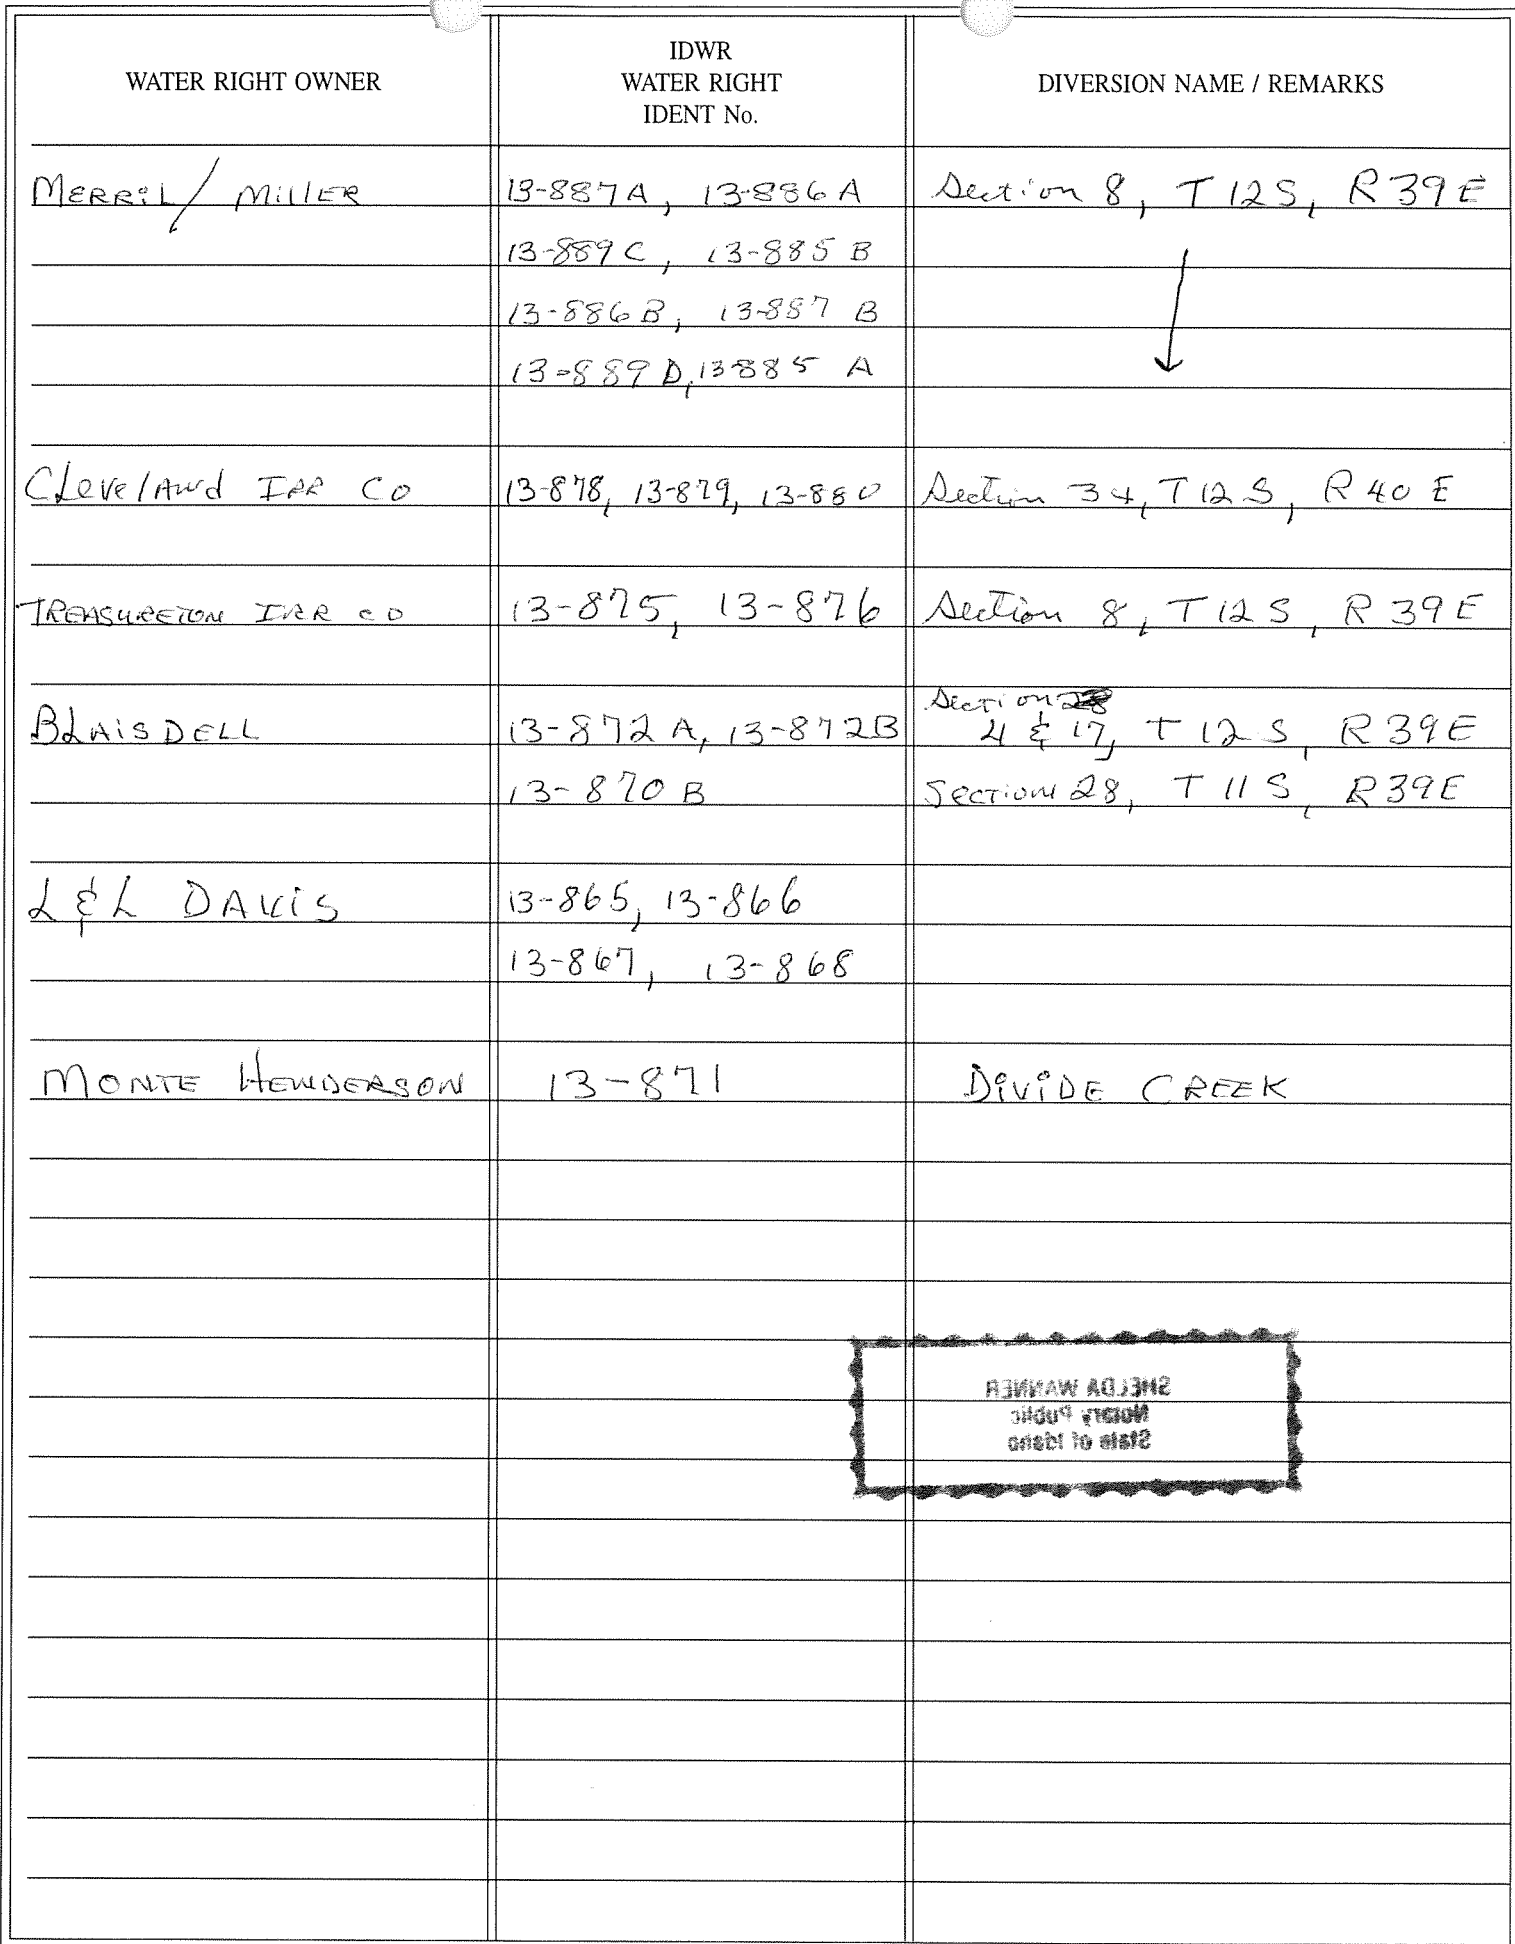 WATER RIGHT OWNER
IDWR
WATER RIGHT
IDENT No.
DIVERSION NAME / REMARKS
MERRIL / MILLER 13-887A, 13-886A Section 8, T 12S, R 39E
13-889C, 13-885 B
13-886B, 13-887 B
13-889 D, 13-885 A
Cleveland IRR Co 13-878, 13-879, 13-880 Section 34, T 12 S, R 40 E
TREASURETON IRR CO 13-875, 13-876 Section 8, T 12 S, R 39E
Section
BLAISDELL 13-872 A, 13-872B 4 & 17, T 12 S, R 39E
13-870 B Section 28, T 11 S, R 39E
L & L DAVIS 13-865, 13-866
13-867, 13-868
MONTE HENDERSON 13-871 DIVIDE CREEK
SHELDA WANNER
Notary Public
State of Idaho